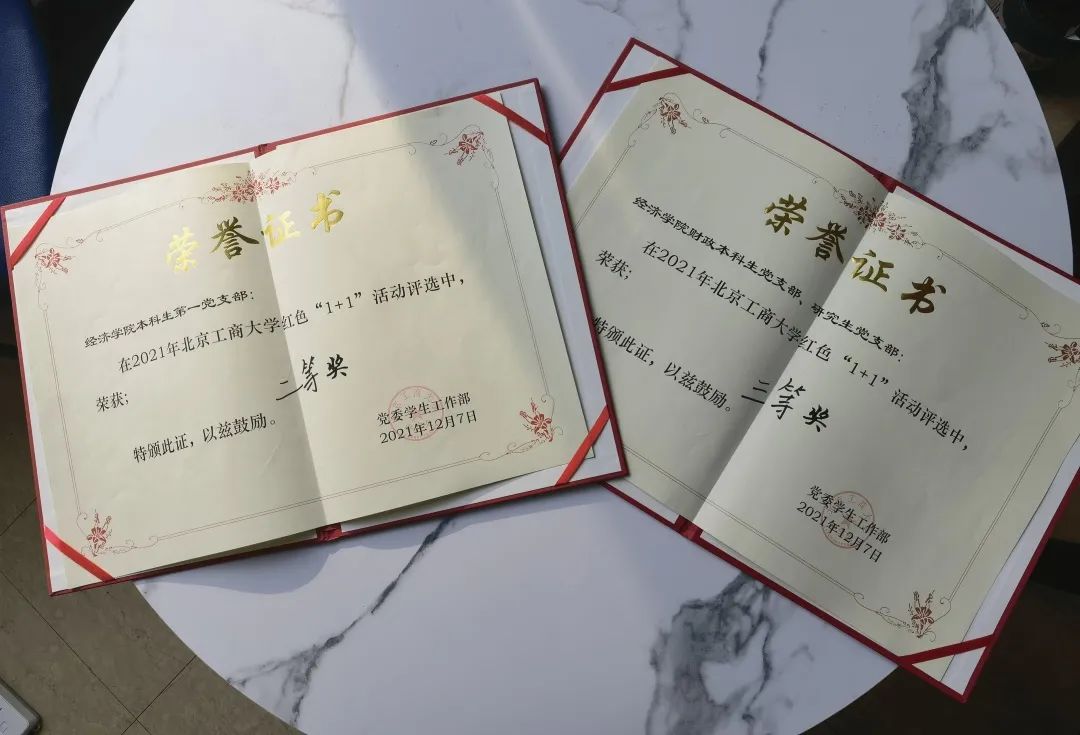 荣誉证书
经济学院本科生第一党支部：
在2021年北京工商大学红色“1+1”活动评选中，
荣获：
二等奖
特颁此证，以兹鼓励。
党委学生工作部
2021年12月7日
荣誉证书
经济学院财政本科生党支部、研究生党支部：
在2021年北京工商大学红色“1+1”活动评选中，
荣获：
三等奖
特颁此证，以兹鼓励。
党委学生工作部
2021年12月7日